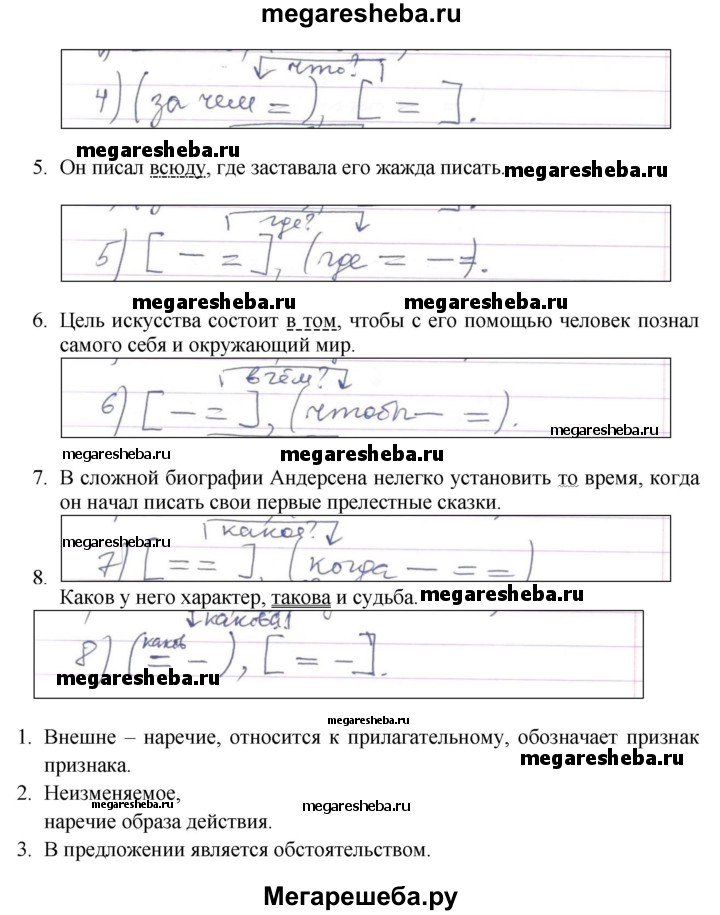 megaresheba.ru
что?
4) (за чем = ), [ = ].
megaresheba.ru
5. Он писал всюду, где заставала его жажда писать. megaresheba.ru
где?
5) [ – = ], (где = –=).
megaresheba.ru megaresheba.ru
6. Цель искусства состоит в том, чтобы с его помощью человек познал
самого себя и окружающий мир.
в чём?
6) [ – = ], (чтобы – = ).
megaresheba.ru
megaresheba.ru
7. В сложной биографии Андерсена нелегко установить то время, когда
он начал писать свои первые прелестные сказки.
какое?
megaresheba.ru
7) [ = = ], (когда – = = )
8.
Каков у него характер, такова и судьба. megaresheba.ru
какова?
каков
8) ( = – ), [ = – ].
megaresheba.ru
megaresheba.ru
1. Внешне – наречие, относится к прилагательному, обозначает признак
признака.
megaresheba.ru
2. Неизменяемое,
megaresheba.ru megaresheba.ru
наречие образа действия.
3. В предложении является обстоятельством.
Мегарешеба.ру